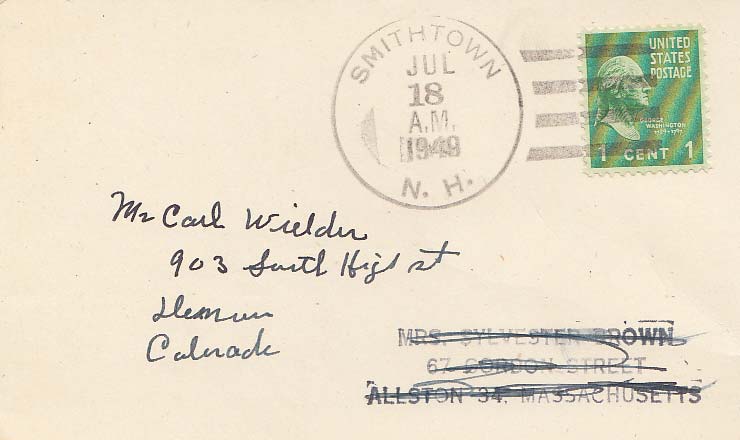 SMITHTOWN
JUL
18
A.M.
1949
N. H.
UNITED
STATES
POSTAGE
GEORGE
WASHINGTON
1 CENT 1
Mr Carl Wielder
903 South High st
Denver
Colorado
MRS. SYLVESTER BROWN
67 GORDON STREET
ALLSTON 34, MASSACHUSETTS